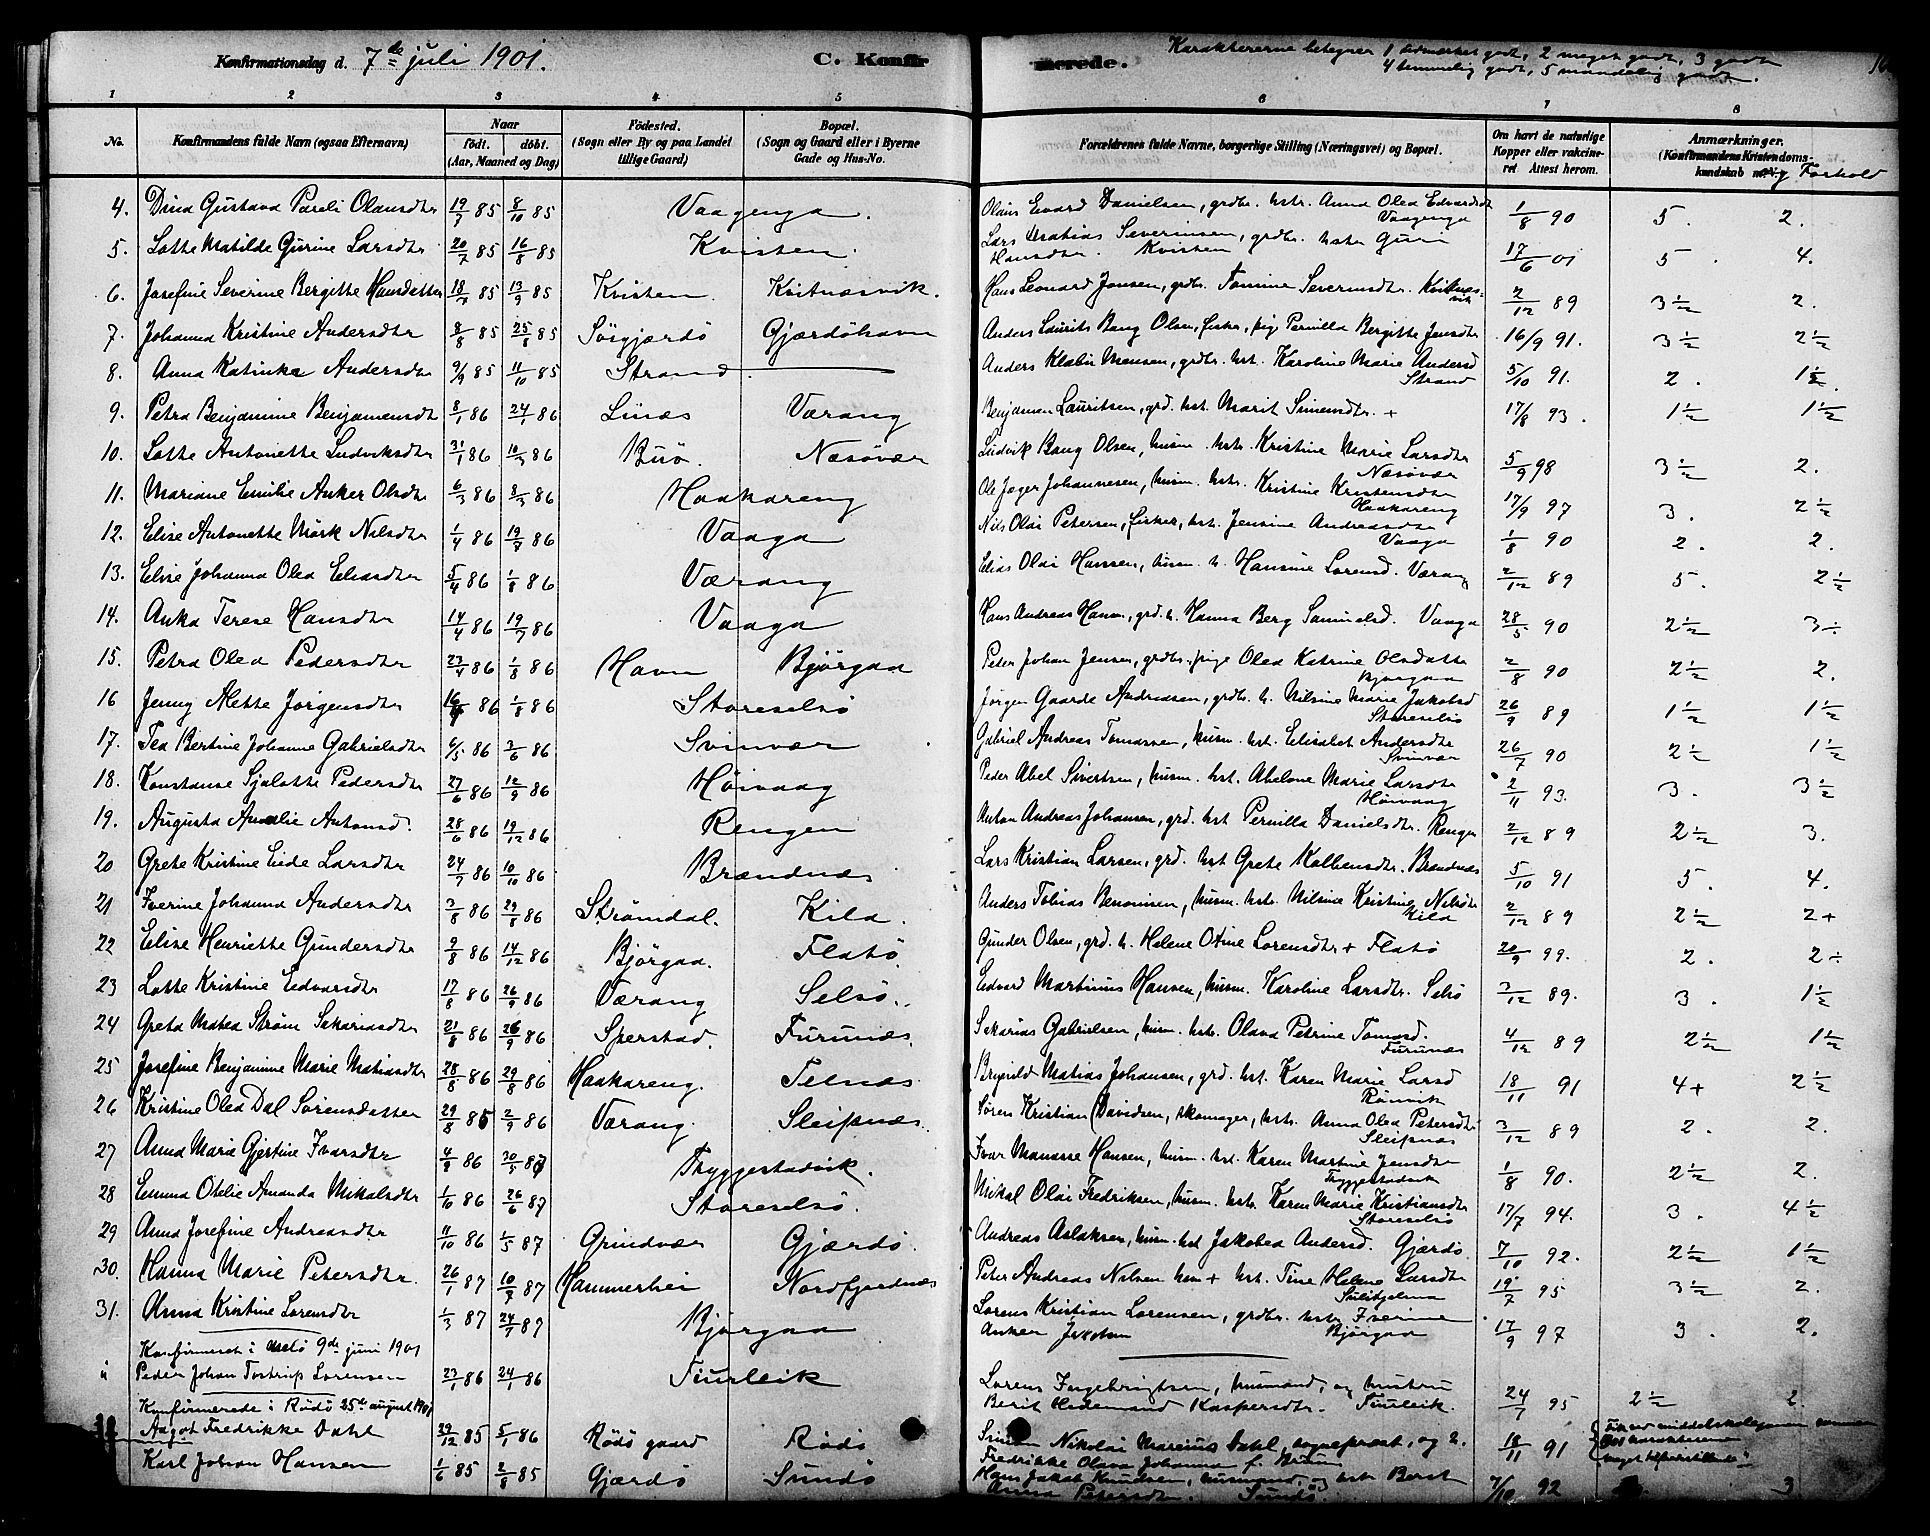 Konfirmationsdag d. 7de juli 1901. C. Konfir
merede. Karaktererne betegner 1 udmerket godt, 2 meget godt, 3 godt
4 temmelig godt, 5 maadelig godt.
1 2 3 4 5
6 7 8
No. Konfirmandens fulde Navn (ogsaa Efternavn) Naar født. døbt. (Aar, Maaned og Dag) Fødested. (Sogn eller By og paa Landet tillige Gaard) Bopæl. (Sogn og Gaard eller i Byerne Gade og Hus-No.
Forældrenes fulde Navne, borgerlige Stilling (Næringsvei) og Bopæl. Om havt de naturlige Kopper eller vakcineret. Attest herom. Anmærkninger. (Konfirmandens Kristendomskundskab og Forhold
4. Dina Gustava Pareli Olausdtr 19/7 85 8/10 85 Vaagenga. Olaus Evard Danielsen, grdbr. hstr. Anna Olea Edvardsdt Vaagenga 1/8 90 5. 2.
5. Lotte Matilde Gurine Larsdtr 20/7 85 16/8 85 Kvisten. Lars Matias Severinsen, grdbr. hstr Guri Hansdtr. Kvisten 17/6 01 5. 4.
6. Josefine Severine Bergitte Hansdatter 18/7 85 13/9 85 Kvisten. Kvitnæsvik. Hans Leonard Jensen, grdbr. Tomine Severinsdtr. Kvitnæsvik 2/12 89 3½ 2.
7. Johanna Kristine Andersdtr 8/8 85 25/8 85 Sørgjærdø Gjærdøhavn Anders Laurits Bang Olsen, fisker, pig Pernilla Bergitte Jensdtr 16/9 91. 3½ 2½
8. Anna Katinka Andersdtr 9/9 85 11/10 85 Strand. Anders Klabu Monsen, grdbr. hst. Karoline Marie Andersd Strand 5/10 91. 2. 1½.
9. Petra Benjamine Benjamensdt 8/1 86 24/1 86 Linæs Værang Benjamen Lauritsen, grd. hst. Marit Simensdtr. + 17/8 93. 1½ 1½
10. Lotte Antonette Ludviksdtr 31/1 86 10/3 86 Buø. Næsøvær Ludvik Bang Olsen, husm. hstr. Kristine Marie Larsdtr Næsøvær 5/9 98 3½ 2.
11. Mariane Emilie Anker Olsdtr 6/3 86 8/3 86 Haakareng Ole Jæger Johannesen, husm. hstr. Kristine Kristensdtr Haakareng 17/9 97 3. 2½
12. Elise Antonette Mørk Nilsdtr 1/4 86 19/7 86 Vaaga Nils Olai Petersen, fisker, hst. Jensine Andreasdtr Vaaga 1/8 90 2. 2.
13. Elise Johanna Olea Eliasdtr 5/4 86 1/8 86 Værang Elias Olai Hansen, husm. h. Hansine Lorensd. Værang 2/12 89 5. 2½
14. Anka Terese Hansdtr 14/4 86 19/7 86 Vaaga Hans Andreas Hansen, grd. h. Hanna Berg Samuelsd. Vaaga 28/5 90 2½ 3÷
15. Petra Olea Pedersdtr 23/4 86 1/8 86 Havn Bjørgaa Peter Johan Jensen, grdbr. pige Olea Katrine Olsdatter Bjørgaa 2/8 90 2½ 2.
16 Jenny Alette Jørgensdtr 16/4 86 1/8 86 Storeselsø Jørgen Gaarde Andreasen, grdbr. h. Nilsine Marie Jakobsd Storeselsø 26/9 89 1½ 1½
17. Tea Bertine Johanne Gabrielsdtr 6/5 86 3/6 86 Svinvær Gabriel Andreas Tomassen, husm. hst. Elisabet Andersdtr Svinvær 26/7 90 2½ 1½
18. Konstanse Sjalotte Pedersdtr 27/6 86 12/9 86 Høivaag Peder Abel Sivertsen, husm. hst. Abelone Marie Larsdtr Høivaag 2/11 93. 3. 3½
19. Augusta Amalie Antonsd. 28/6 86 19/12 86 Rengen Anton Andreas Johansen, grd. hst Pernilla Danielsdtr. Rengen 2/12 89 2½ 3.
20 Grete Kristine Eide Larsdtr 24/7 86 10/10 86 Brændnæs Lars Kristian Larsen, grd. hst Grete Kolbensdtr. Brændnæs 5/10 91 5. 4.
21 Iverine Johanna Andersdtr 3/8 86 29/8 86 Strømdal. Kila. Anders Tobias Benonisen, husm. hstr. Nilsine Kristine Nilsdtr Kila 2/12 89 2½ 2+
22 Elise Henriette Gundersdtr 9/8 86 14/12 86 Bjørgaa. Flatø. Gunder Olsen, grd. h. Helene Otine Lorensdtr + Flatø 20/9 99. 2. 2÷
23 Lotte Kristine Edvarsdtr 17/8 86 26/9 86 Værang Selsø. Edvard Martinus Hansen, husm. Karoline Larsdtr. Selsø 3/12 89. 3. 1½
24 Greta Matea Strøm Sakariasdtr 21/8 86 26/9 86 Sperstad. Furunæs. Sakarias Gabrielsen, husm. hstr. Olava Petrine Tomasd. Furunæs 4/12 89 2½ 1½
25 Josefine Benjamine Marie Matiasdtr 28/8 86 29/8 86 Haakareng. Telnæs Matias Johansen, grd. hst. Karen Marie Larsd Rønvik 18/11 91 4+ 2½
26 Kristine Olea Dal Sørensdatter 29/8 86 2/9 86 Værang. Sleipnæs. Søren Kristian Davidsen, skomager, hstr. Anna Olea Petersdtr Sleipnæs 3/12 89 2. 2.
27 Anna Marie Gjertine Ivarsdtr 4/9 86 30/5 87 Tryggestadvik. Ivar Manasse Hansen, husm. hst. Karen Martine Jensdtr Tryggestadvik 1/8 90. 2½ 2.
28 Emma Otelie Amanda Mikalsdtr 1/10 86 26/6 87 Storeselsø. Mikal Olai Fredriksen, husm. hstr. Karen Marie Kristiansdtr Storeselsø 17/7 94. 3. 4½
29 Anna Josefine Andreasdtr 11/10 86 1/5 87 Grindvær Gjærdø. Andreas Aslaksen, husm. hst Jakobea Andersd. Gjærdø. 7/10 92. 2½ 1½
30. Hanna Marie Petersdtr. 26/1 87 10/7 87 Hammerhei Nordfjordnæs Peter Andreas Nilsen + hst. Tine Helene Larsdtr Sulitjelma 19/7 95 3½ 2.
31. Anna Kristine Lorensdtr 1/3 87 24/7 87 Bjørgaa Lorens Kristian Lorensen, grdbr. hstr Iverine Anker Bjørgaa 17/9 97 3. 2.
Konfirmeret i Melø 9de juni 1901
Peder Johan Tostrup Lorensen 23/1 86 24/1 86 Tiurleik Lorens Ingebrigtsen, husmand, og hustru Berit Hedemand Kaspersdtr. Tiurleik. 24/7 95 2½ 2.
Konfirmerede i Rødø 25de august 1901
Aagot Fredrikke Dahl 29/12 85 5/1 86 Rødø gaard Rødø Simon Nikolai Marcius Dahl, sogneprest, og h. Fredrikke Olava Johanna f. 18/11 91 Fik ved middelskoleexamen meget tilfredsstillende
Karl Johan Hansen 1/6 85 2/8 85 Gjærdø Sundø Hans Jakob Knudsen, husmand, og hstr Berit Anna Petersdtr. Sundø. 7/10 92 3.